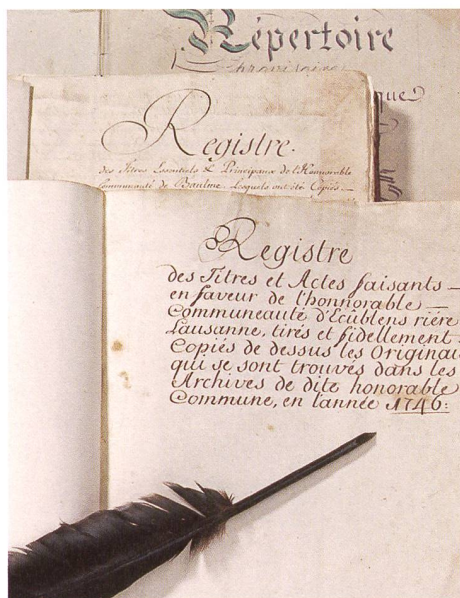 Répertoire
provisoire
que
Registre.
des Titres Essentiels & Principaux de l'Honnorable
Communauté de Baulme Lesquels ont été Copiés
Registre
des Titres et Actes faisants
en faveur de l'honnorable
Communeauté d'Ecûblens riére
Lausanne, tirés et fidellement
Copiés de dessus les Originau
qui se sont trouvés dans les
Archives de dite honorable
Commune, en l'année 1746: